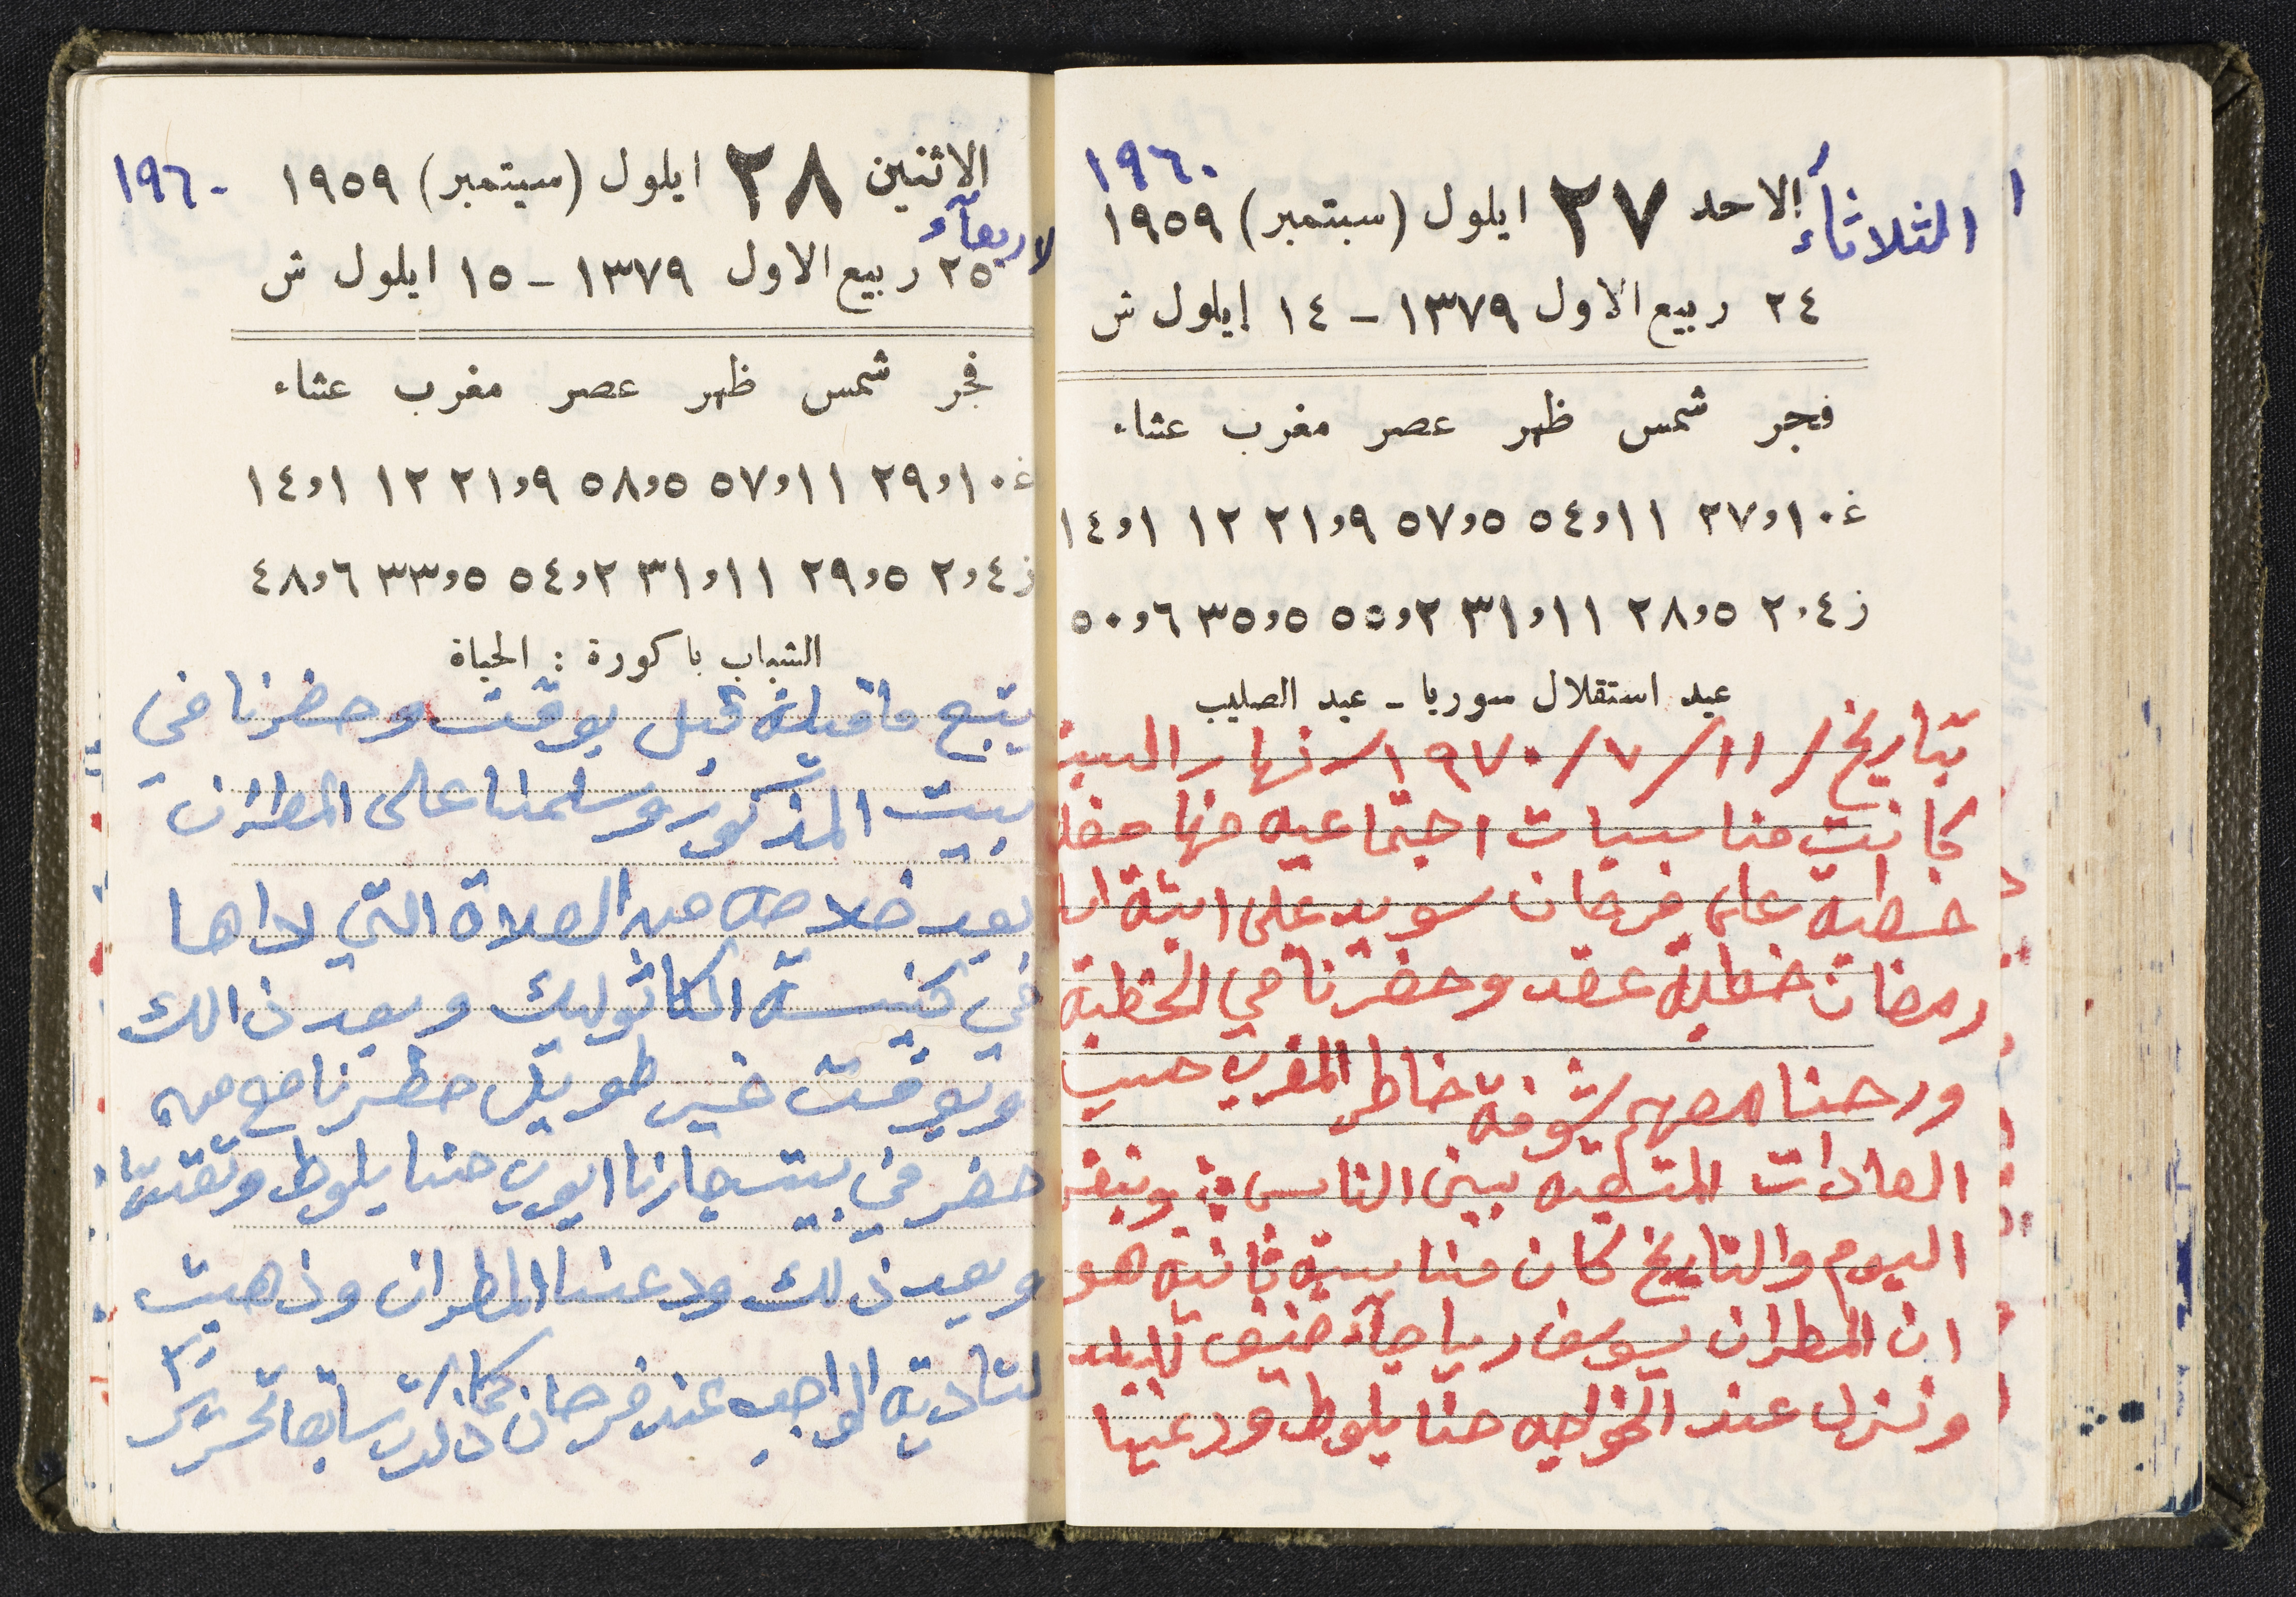 ١٩٦٠
الثلاثاء الاحد ٢٧ ايلول (سبتمبر) ١٩٥٩
٢٤ ربيع الاول ١٣٧٩ - ١٤ إيلول ش
فجر شمس ظهر عصر مغرب عشاء
غ ١٠و٣٧ ١١و٥٤ ٥و٥٧ ٩و٢١ ١٢ ١و١٤
ز ٤و٢٠ ٥و٢٨ ١١و٣١ ٢و٥٥ ٥و٣٥ ٦و٥٠
عيد استقلال سوريا - عيد الصليب
بتاريخ / ١١ / ٧ / ١٩٧٠ / نهار السبت
كانت مناسبات اجتماعيه منها حفلة
خطبة على فرحان سويد على ابنة
رمضان خطبة عقد وحضرنا في الخطبة
ورحنا معهم شوفة خاطر المغرب حسب
العادات المتبعه بين الناس وبنفس
اليوم والتاريخ كان مناسبة ثانية هو
ان المطران يوسف ريا جاء ضيف للبلد
ونزل عند الخواجه حنا بلوط ودعينا
الاثنين ٢٨ ايلول (سيتمبر) ١٩٥٩ ١٩٦٠
لاربعآء
٢٥ ربيع الاول ١٣٧٩ - ١٥ ايلول ش
فجر شمس ظهر عصر مغرب عشاء
غ ١٠و٢٩ ١١و٥٧ ٥و٥٨ ٩و٢١ ١٢ ١و١٤
ز ٤و٢ ٥و٢٩ ١١و٣١ ٢و٥٤ ٥و٣٣ ٦و٤٨
الشباب باكورة : الحياة
يتبع ماقبله قبل بوقت وحضرنا في
بيت المذكور وسلمنا على المطران
بعد خلاصه من الصلاة التي اداها
في كنيسة الكاثوليك وبعد ذالك
وبوقت غير طويل حظرنا مع من
حضر في بيت جارنا ايوب حنا بلوط
وبعد ذلك ودعنا المطران وذهبت
لتادية الواجب عند فرحان كما ذكرت سابقا تحرير